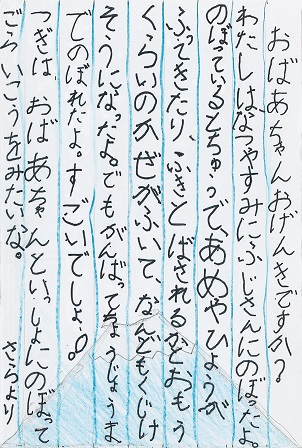 おばあちゃんおげんきですか？
わたしは、なつやすみにふじさんにのぼったよ。
のぼっているとちゅうで、あめやひょうが
ふってきたり、ふきとばされるかとおもう
くらいのかぜがふいて、なんどもくじけ
そうになったよ。でもがんばってちょうじょうま
でのぼれたよ。すごいでしょ、。
つぎは おばあちゃんといっしょにのぼって
ごらいこうをみたいな。
さらより